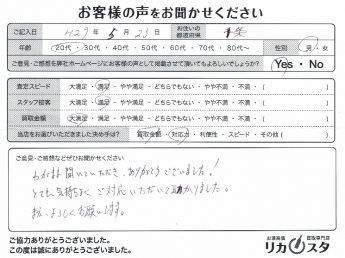 お客様の声をお聞かせください
ご記入日 年 5 月 23 日 お住いの都道府県
年齢 20代・30代・40代・50代・60代・70代・80代〜 性別 男・女
ご意見・ご感想を弊社ホームページにお客様の声として掲載させて頂いてもよろしいでしょうか? Yes・No
査定スピード 大満足・満足・やや満足・どちらでもない・やや不満・不満・( )
スタッフ接客 大満足・満足・やや満足・どちらでもない・やや不満・不満・( )
買取金額 大満足・満足・やや満足・どちらでもない・やや不満・不満・( )
当店をお選びいただきました決め手は? 買取金額・対応力・利便性・スピード・その他( )
ご意見・ご感想などぜひお聞かせください
わがまま聞いていただき、ありがとうございました!
とても気持ちよくご対応いただいて助かりました。
また、よろしくお願いします。
ご協力ありがとうございました。
この度は誠にありがとうございました。
お酒高価買取専門店
リカスタ